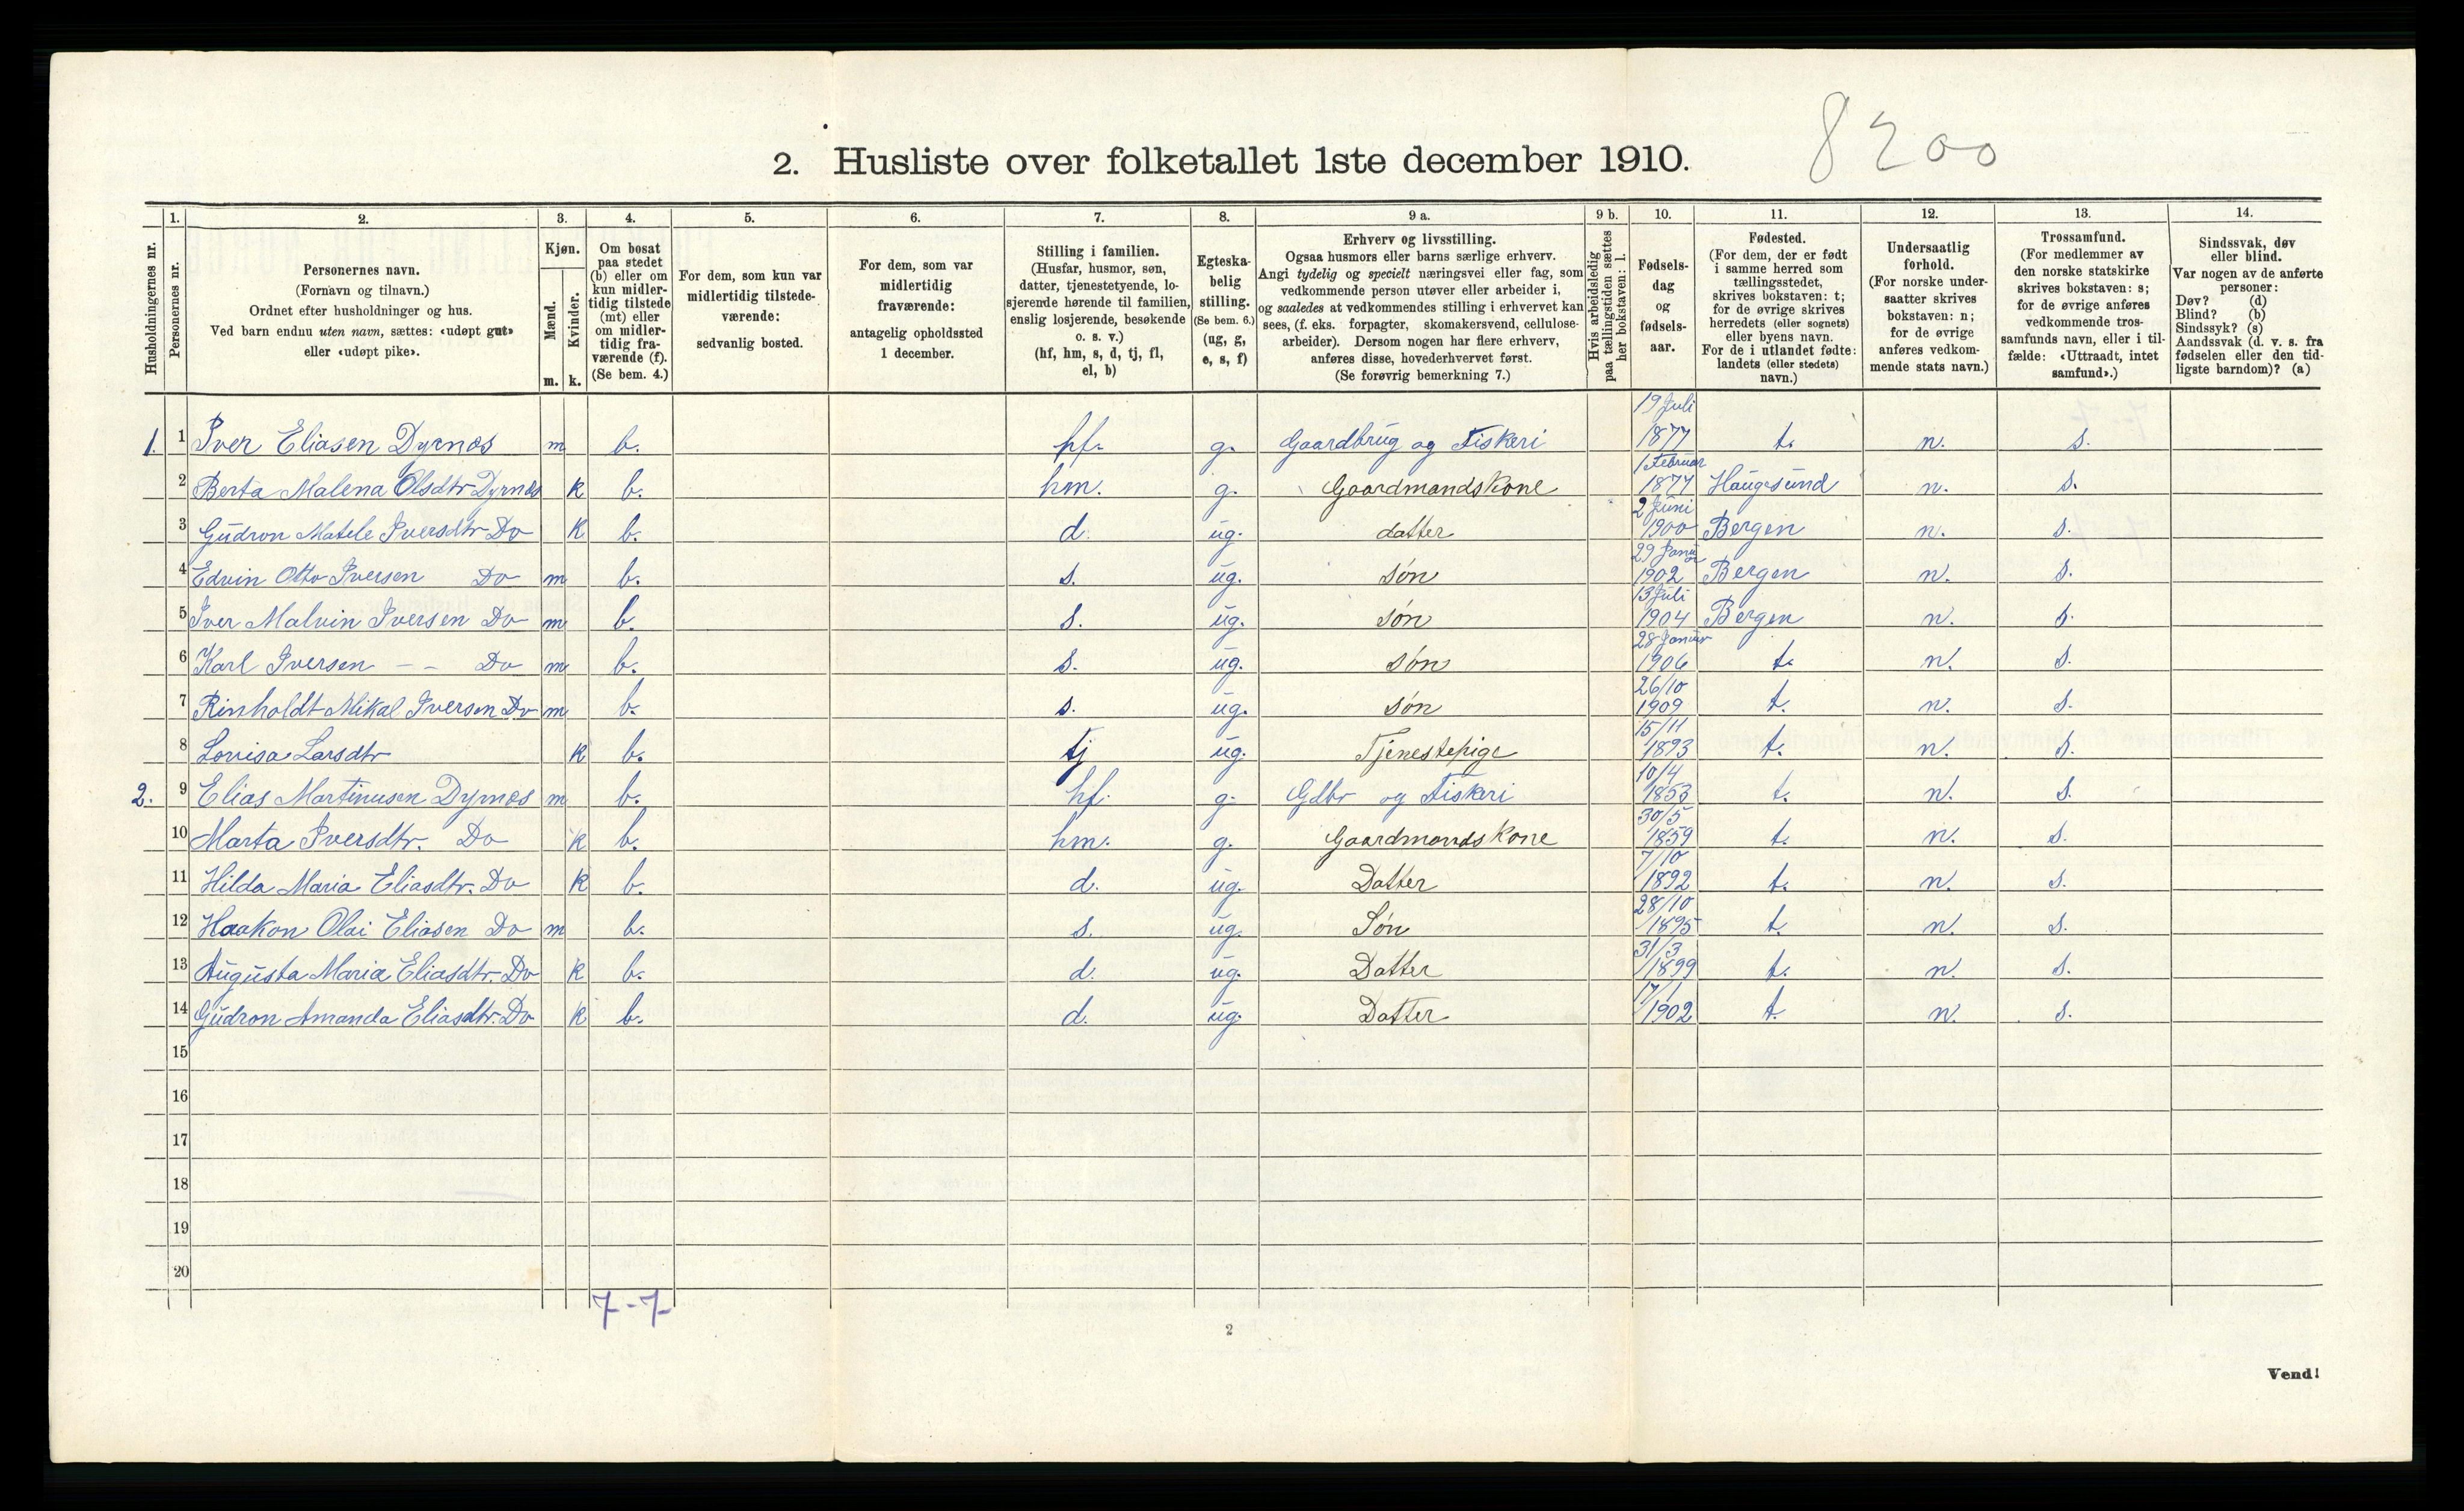 8200
2. Husliste over folketallet 1ste december 1910.
Husholdningernes nr.
1. Personernes nr.
2. Personernes navn.
(Fornavn og tilnavn.)
Ordnet efter husholdninger og hus.
Ved barn endnu uten navn, sættes: «udøpt gut»
eller «udøpt pike».
3. Kjøn.
Mænd. m.
Kvinder. k.
4. Om bosat
paa stedet
(b) eller om
kun midler-
tidig tilstede
(mt) eller
om midler-
tidig fra-
værende (f).
(Se bem. 4.)
5. For dem, som kun var
midlertidig tilstede-
værende:
sedvanlig bosted.
6. For dem, som var
midlertidig
fraværende:
antagelig opholdssted
1 december.
7. Stilling i familien.
(Husfar, husmor, søn,
datter, tjenestetyende, lo-
sjerende hørende til familien,
enslig losjerende, besøkende
o. s. v.)
(hf, hm, s, d, tj, fl,
el, b)
8. Egteska-
belig
stilling.
(Se bem. 6.)
(ug, g,
e, s, f)
9 a. Erhverv og livsstilling.
Ogsaa husmors eller barns særlige erhverv.
Angi tydelig og specielt næringsvei eller fag, som
vedkommende person utøver eller arbeider i,
og saaledes at vedkommendes stilling i erhvervet kan
sees, (f. eks. forpagter, skomakersvend, cellulose-
arbeider). Dersom nogen har flere erhverv,
anføres disse, hovederhvervet først.
(Se forøvrig bemerkning 7.)
9 b. Hvis arbeidsledig
paa tællingstiden sættes
her bokstaven: l.
10. Fødsels-
dag
og
fødsels-
aar.
11. Fødested.
(For dem, der er født
i samme herred som
tællingsstedet,
skrives bokstaven: t;
for de øvrige skrives
herredets (eller sognets)
eller byens navn.
For de i utlandet fødte:
landets (eller stedets)
navn.)
12. Undersaatlig
forhold.
(For norske under-
saatter skrives
bokstaven: n;
for de øvrige
anføres vedkom-
mende stats navn.)
13. Trossamfund.
(For medlemmer av
den norske statskirke
skrives bokstaven: s;
for de øvrige anføres
vedkommende tros-
samfunds navn, eller i til-
fælde: «Uttraadt, intet
samfund».)
14. Sindssvak, døv
eller blind.
Var nogen av de anførte
personer:
Døv? (d)
Blind? (b)
Sindssyk? (s)
Aandssvak (d. v. s. fra
fødselen eller den tid-
ligste barndom)? (a)
1. 1 Iver Eliasen Dyrnæs m b. hf. g. Gaardbrug og Fiskeri 19 Juli 1877 t. n. s.
2 Berta Malena Olsdtr Dyrnæs k b. hm. g. Gaardmandskone 1 Februar 1877 Haugesund n. s.
3 Gudron Matele Iversdtr Do k b. d. ug. datter 2 Juni 1900 Bergen n. s.
4 Edvin Otto Iversen Do m b. s. ug. søn 29 Januar 1902 Bergen n. s.
5 Iver Malvin Iversen Do m b. s. ug. søn 13 Juli 1904 Bergen n. s.
6 Karl Iversen - - Do m b. s. ug. søn 28 Januar 1906 t. n. s.
7 Rinholdt Mikal Iversen Do m b. s. ug. søn 26/10 1909 t. n. s.
8 Lovisa Larsdtr k b. tj ug. Tjenestepige 15/11 1893 t. n. s.
2. 9 Elias Martinusen Dyrnæs m b. hf. g. Gdbr og Fiskeri 10/4 1853 t. n. s.
10 Marta Iversdtr. Do k b. hm. g. Gaardmandskone 30/5 1859 t. n. s.
11 Hilda Maria Eliasdtr. Do k b. d. ug. Datter 7/10 1892 t. n. s.
12 Haakon Olai Eliasen Do m b. s. ug. Søn 28/10 1895 t. n. s.
13 Augusta Maria Eliasdtr. Do k b. d. ug. Datter 31/3 1899 t. n. s.
14 Gudron Amanda Eliasdtr. Do k b. d. ug. Datter 17/1 1902 t. n. s.
15
16
17
18
19
20
7-7
2
Vend!